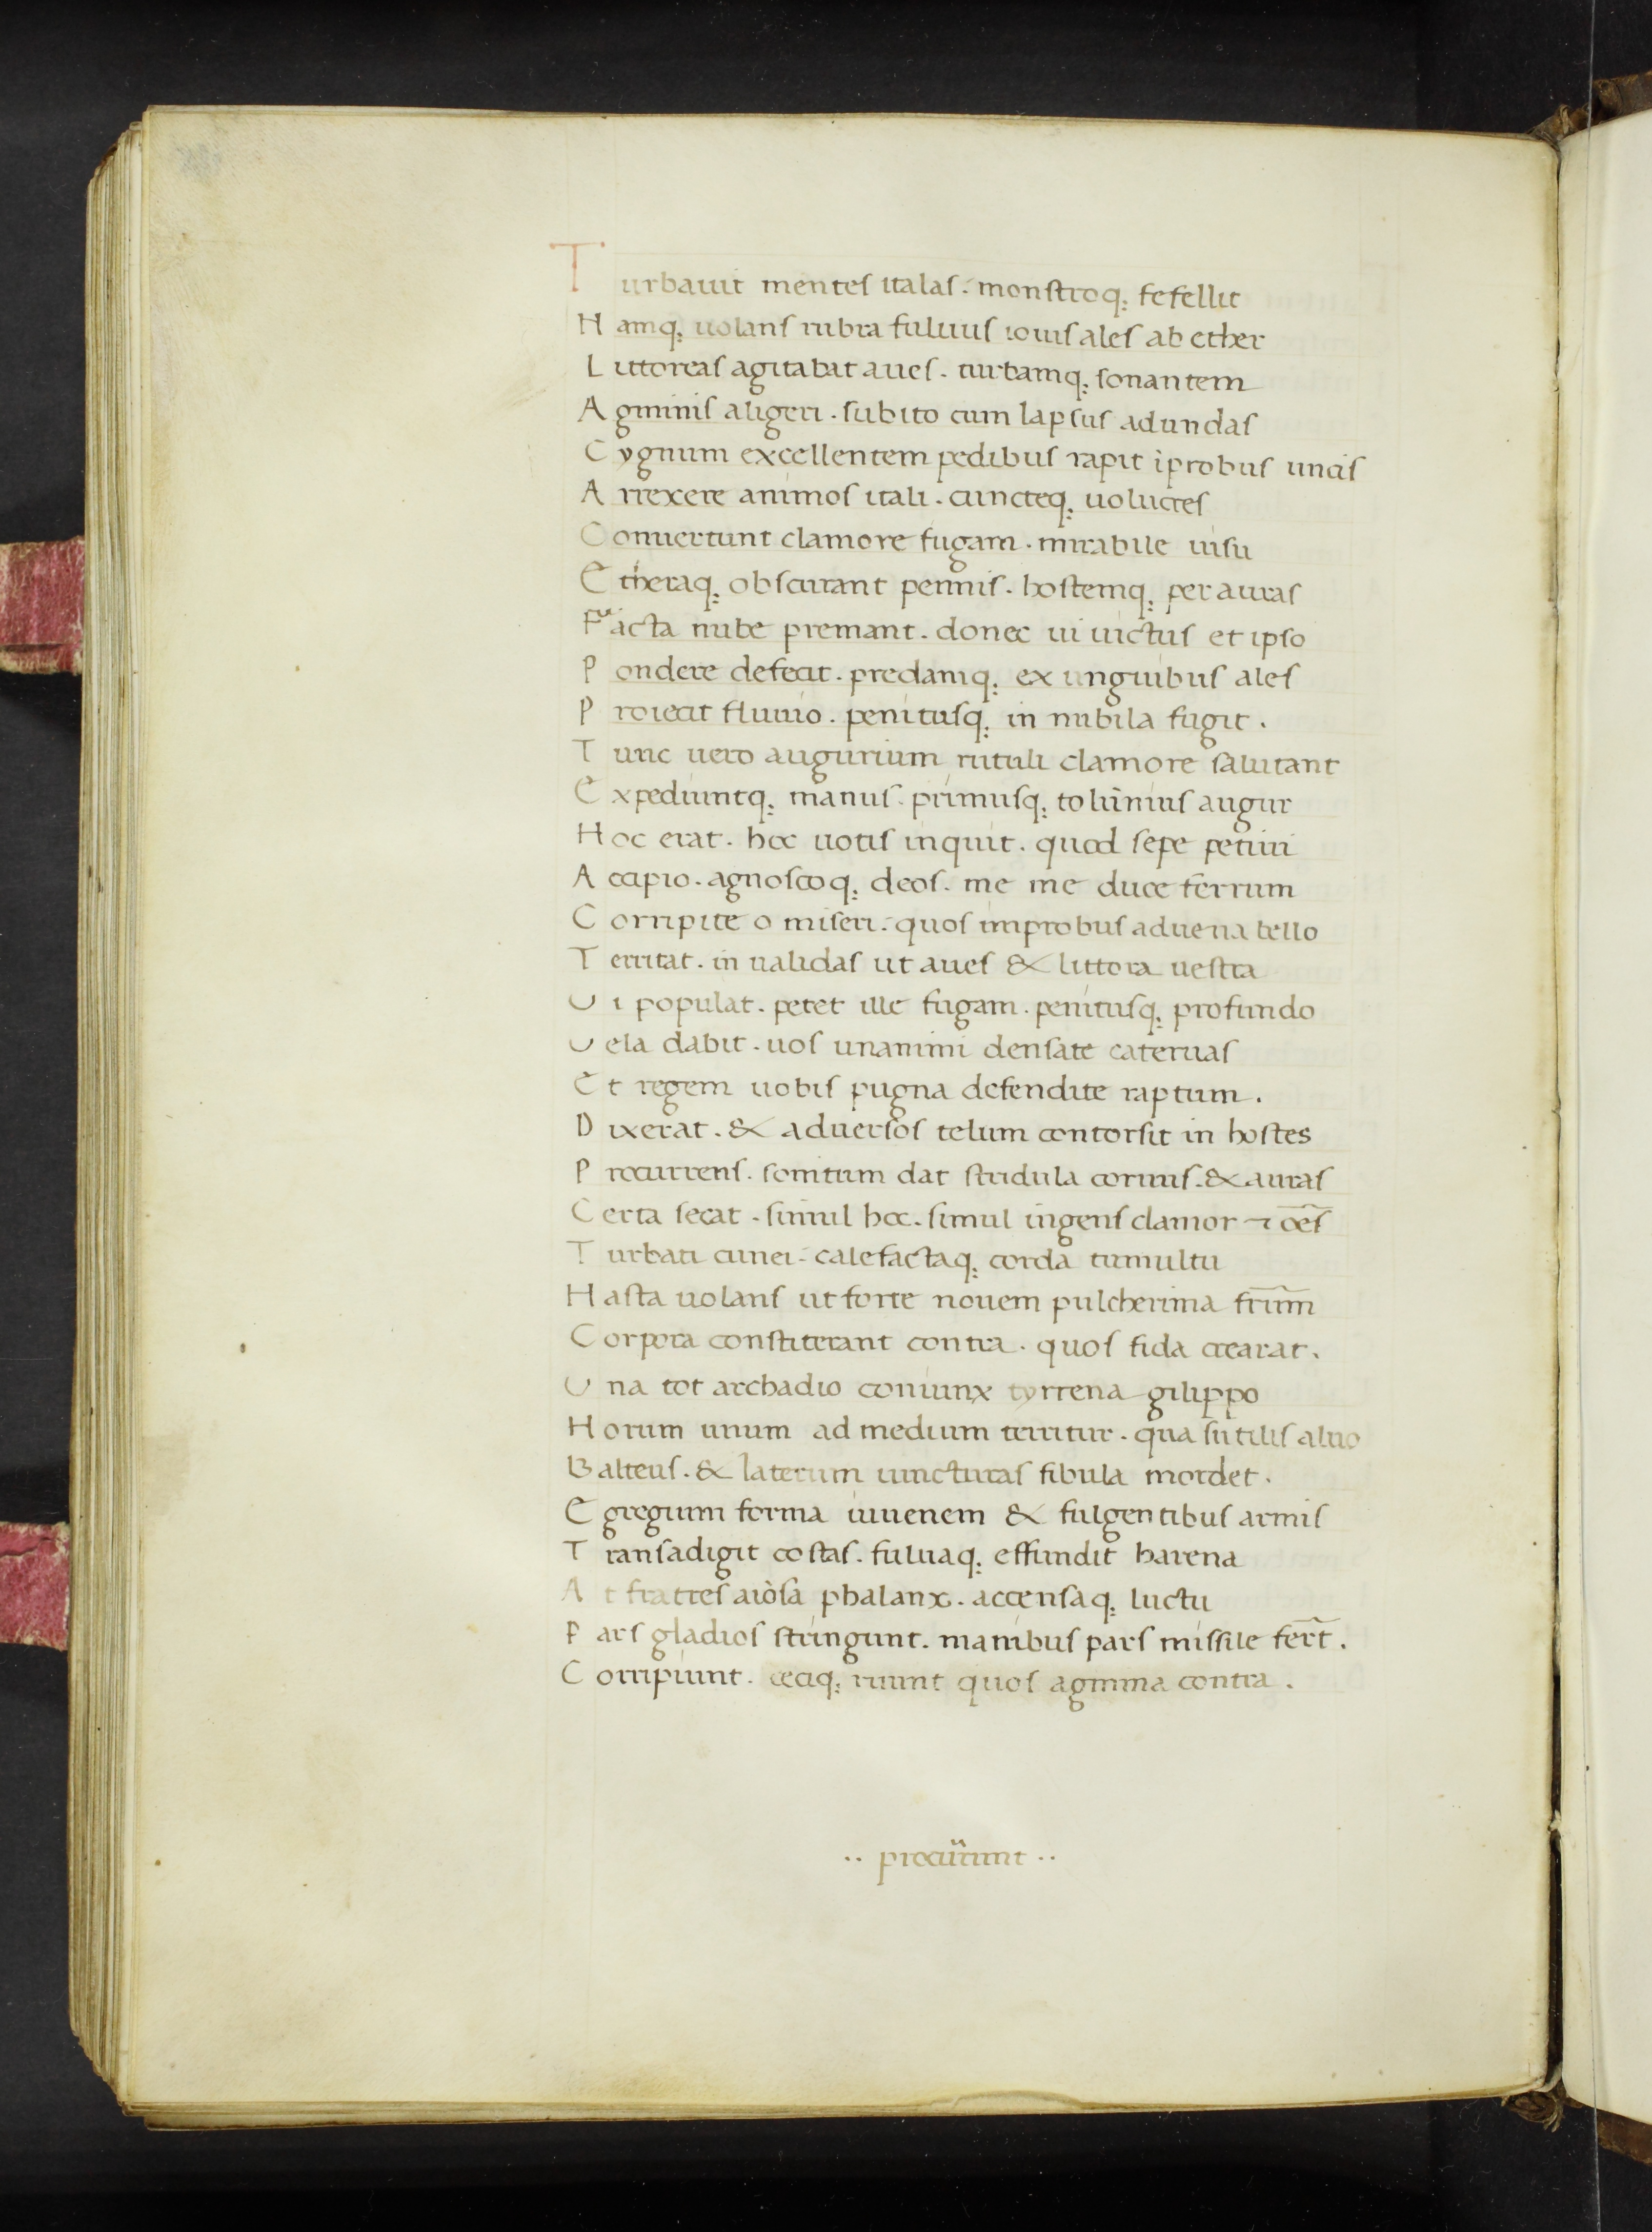 Turbauit mentes italas. monstroq; fefellit
Hamq; uolans rubra fuluus iouis ales ab ether
Littoreas agitabat aues. turbamq; sonantem
Agminis aligeri. subito cum lapsus ad undas
Cygnum excellentem pedibus rapit īprobus uncis
Arrexere animos itali. cuncteq; uolucres
Conuertunt clamore fugam. mirabile uisu
Etheraq; obscurant pennis. hostemq; per auras
Facta nube premant. donec ui uictus et ipso
Pondere defecit. predamq; ex unguibus ales
Proiecit fluuio. penitusq; in nubila fugit.
Tunc uero augurium rutuli clamore salutant
Expediuntq; manus. primusq; tolūnius augur
Hoc erat. hoc uotis inquit. quod sepe petiui
Accipio. agnoscoq; deos. me me duce ferrum
Corripite o miseri. quos improbus aduena bello
Territat. in ualidas ut aues & littora uestra
Vi populat. petet ille fugam. penitusq; profundo
Vela dabit. uos unanimi densate cateruas
Et regem uobis pugna defendite raptum.
Dixerat. & aduersos telum contorsit in hostes
Procurrens. sonitum dat stridula cornus. & auras
Certa secat. simul hoc. simul ingens clamor ⁊ oēs
Turbati cunei. calefactaq; corda tumultu
Hasta uolans ut forte nouem pulcherima frūm
Corpora constiterant contra. quos fida crearat.
Vna tot archadio coniunx tyrrena gilippo
Horum unum ad medium territur. qua sutilis aluo
Balteus. & laterum iuncturas fibula mordet.
Egregium forma iuuenem & fulgentibus armis
Transadigit costas. fuluaq; effundit harena
At fratres aiōsa phalanx. accensaq; luctu
Pars gladios stringunt. manibus pars missile ferr̄.
Corripiunt. ceciq; ruunt quos agmina contra.
·· procurrunt ··